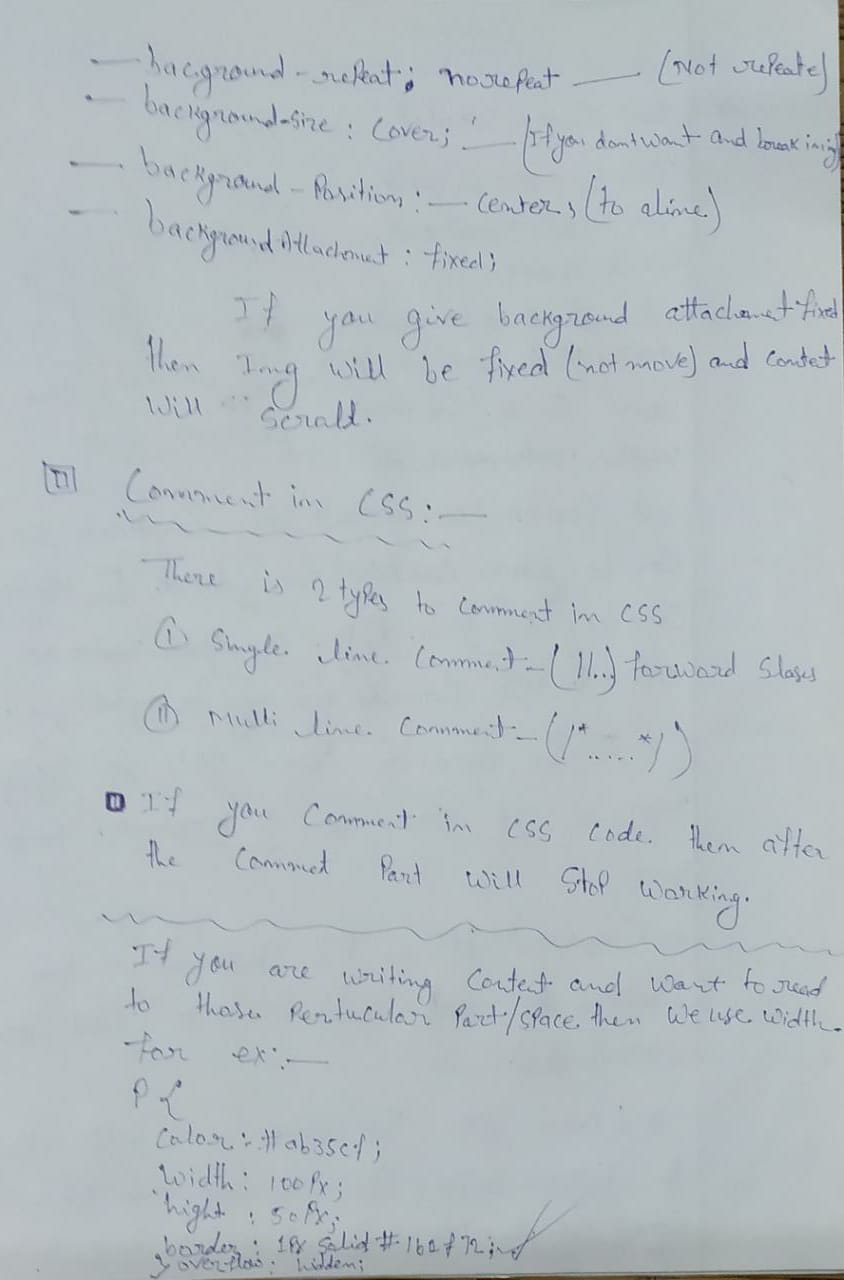 — bacground-repeat; norepeat — (Not repeate)
— background-size : Cover; — (If you dont want and break in img
— background-Position :— Center, (to aline)
— background Attachmet : fixed;
If you give background attachmet fixed
then Img will be fixed (not move) and Contet
will scrall.
Comment in CSS:—
There is 2 types to comment in CSS
(i) Single line comment - (//..) forward slases
(ii) Multi line comment - (/*.....*/)
If you Comment in CSS Code then after
the Commet Part will Stop Working.
If you are writing Contect and want to read
to those Pertucular Part/space then We use width.
for ex:—
P {
Color : #ab35cf;
Width : 100Px;
hight : 50Px;
border : 1Px Solid #162f72;
} overflow : hidden;